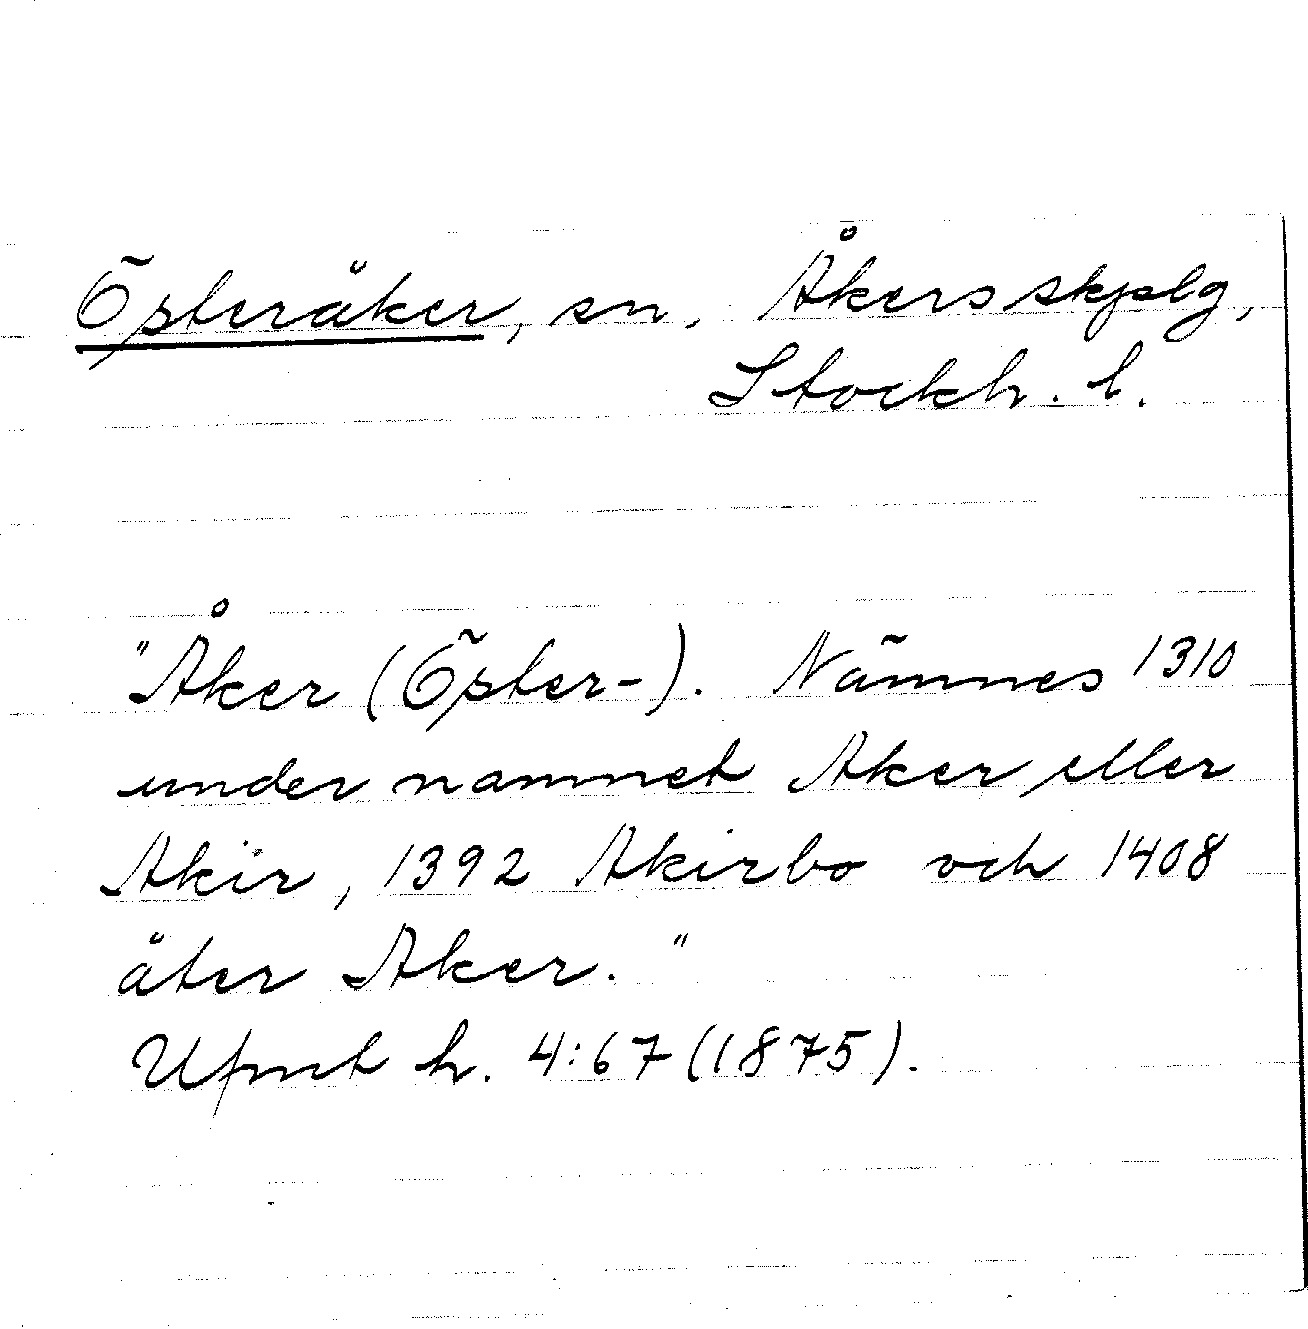 Österåker, sn, Åkers skjplg,
Stockh. l.
"Åker (Öster-). Nämnes 1310
under namnet Aker eller
Akir, 1392 Akirbo och 1408
åter Aker."
Ufmt h. 4:67 (1875).